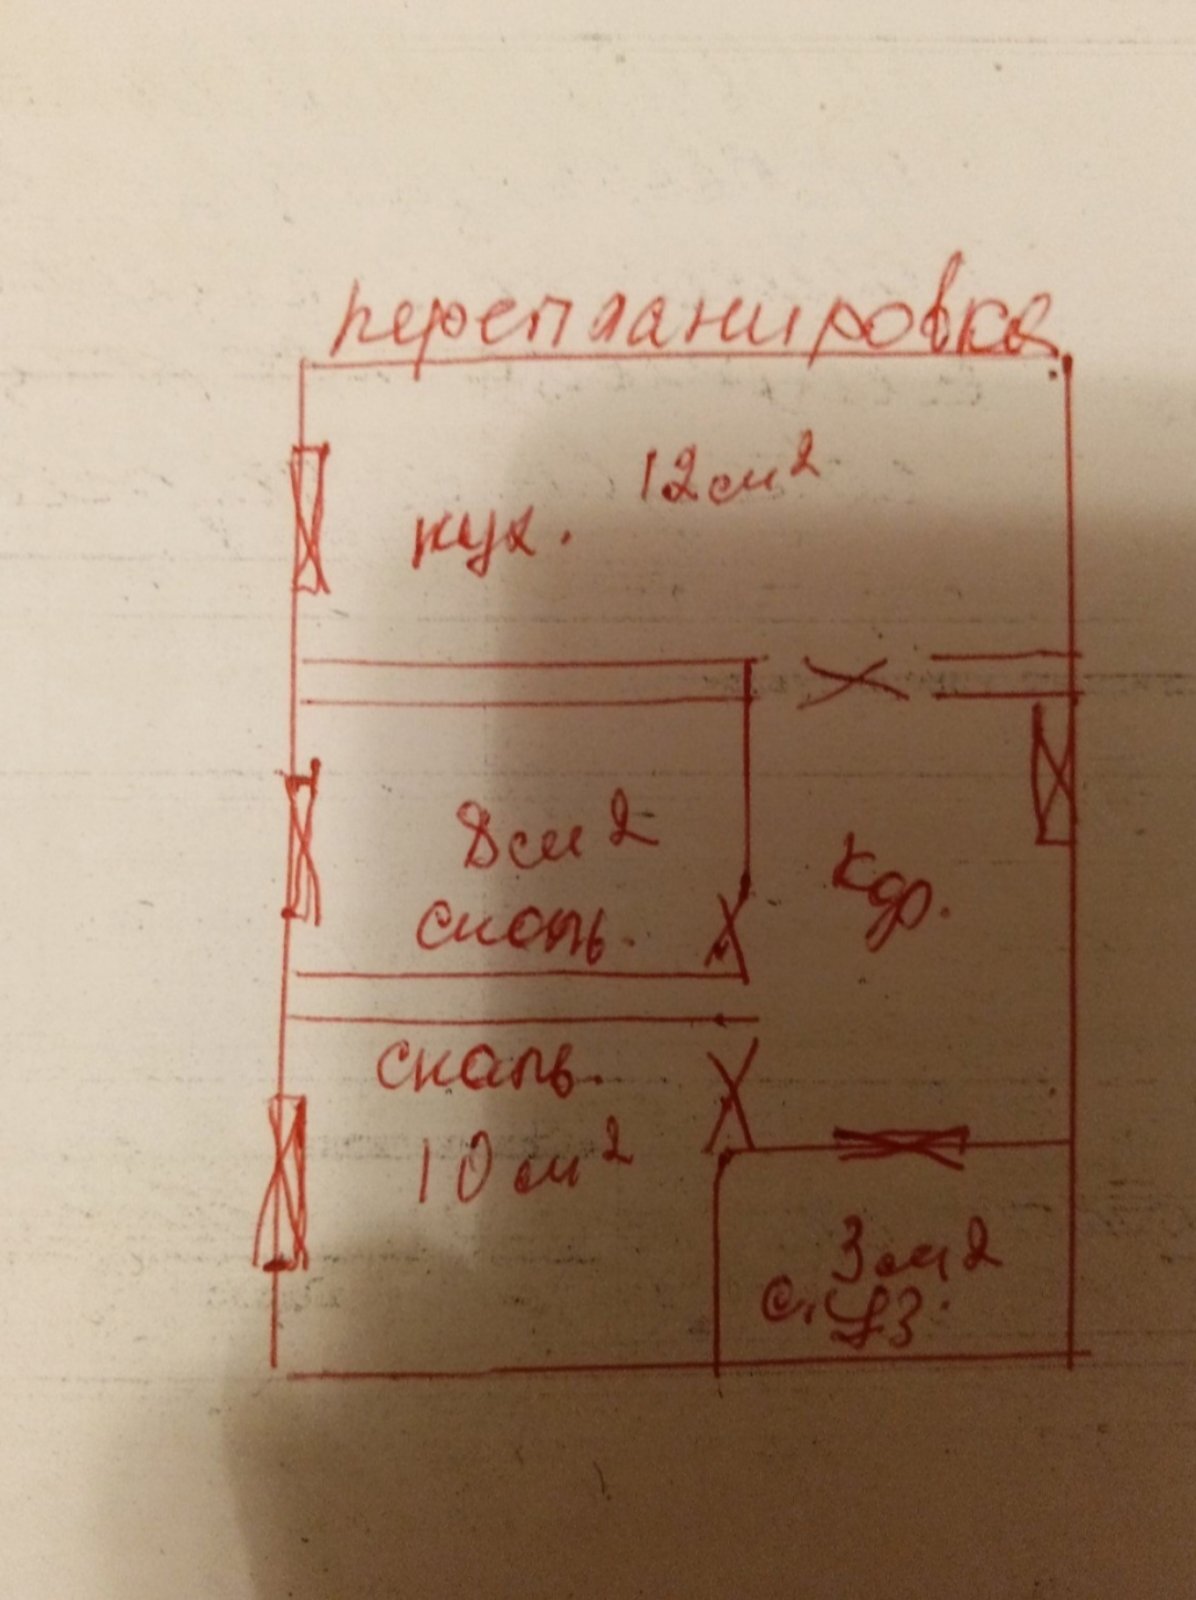 перепланировка
12см²
кух.
8см2
спаль.
кор.
спаль.
10см²
3см2
с. уз.